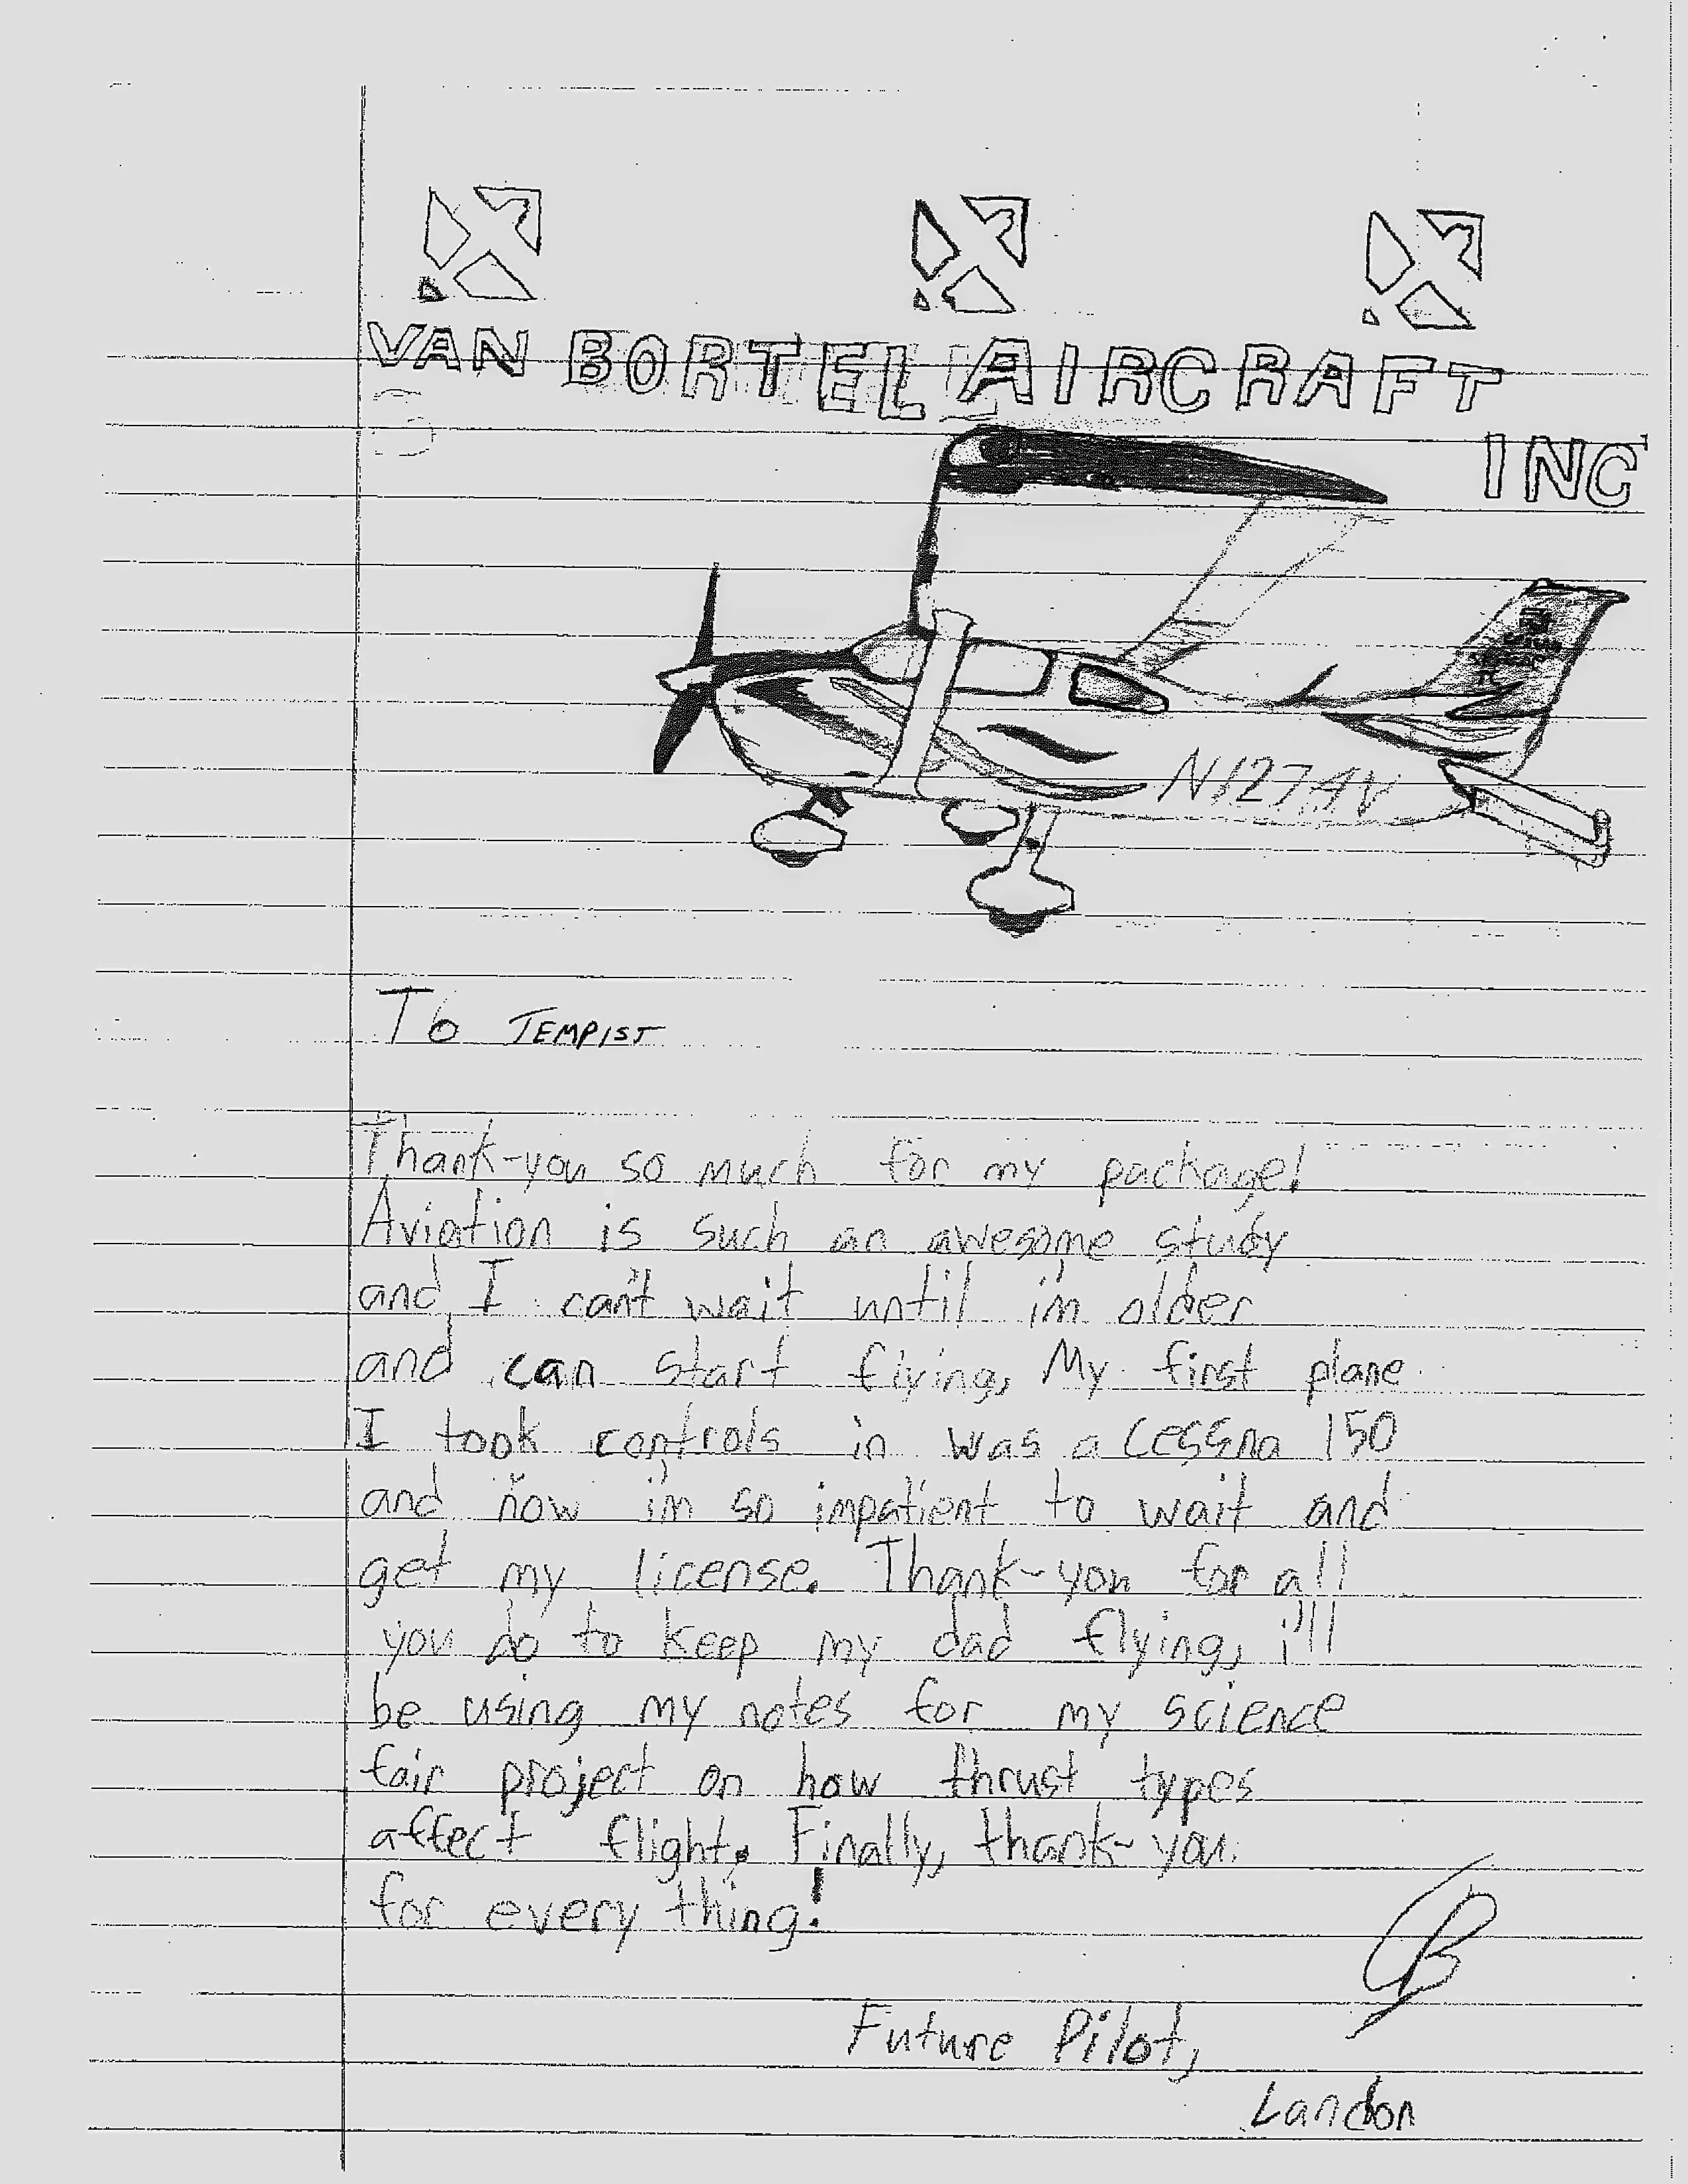 VAN BORTEL AIRCRAFT
INC
N127AV
To TEMPIST
Thank-you so much for my package!
Aviation is such an awesome study
and I can't wait until i'm older
and can start flying, My first plane
I took controls in was a Cessna 150
and now i'm so impatient to wait and
get my license. Thank-you for all
you do to keep my dad flying, i'll
be using my notes for my science
fair project on how thrust types
affect flight. Finally, thank-you
for every thing!
Future Pilot,
Landon